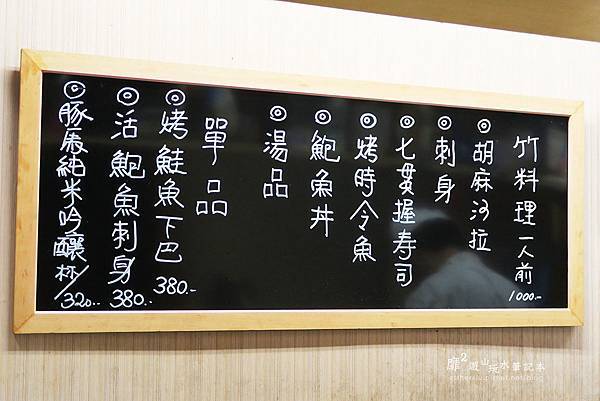 竹料理一人前 1000.-
◎胡麻沙拉
◎刺身
◎七貫握寿司
◎烤時令魚
◎鮑魚丼
◎湯品
單品
◎烤鮭魚下巴 380.-
◎活鮑魚刺身 380.-
純米吟釀 杯/320.-
靡²遊山玩水筆記本